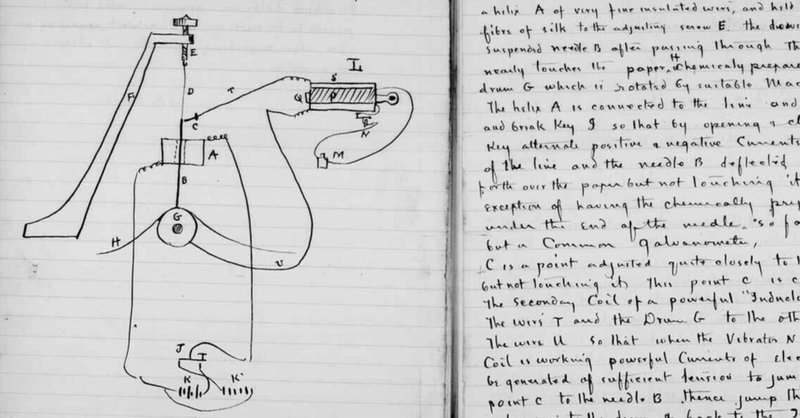 E
F
D
T
C
A
B
G
H
U
S
L
Q
P
N
M
J
I
K
K
a helix A of very fine insulated wire, and held
fibre of silk to the adjusting screw E. the
suspended needle B after passing through the
nearly touches the paper, H chemically prepare
drum G which is rotated by suitable Mac
The helix A is connected to the line and
and break Key J so that by opening & cl
Key alternate positive & negative Currents
of the line and the needle B deflected
forth over the paper but not touching it
exception of having the chemically prep
under the End of the needle, "so fa
but a Common galvanometer,
C is a point adjusted quite closely to t
but not touching it, This point C is c
The secondary Coil of a powerful "Induc
The wire T and the Drum G to the oth
The wire U so that when the Vibrator N
Coil is working powerful Currents of elec
be generated of sufficient tension to jum
point C to the needle B thence jump th